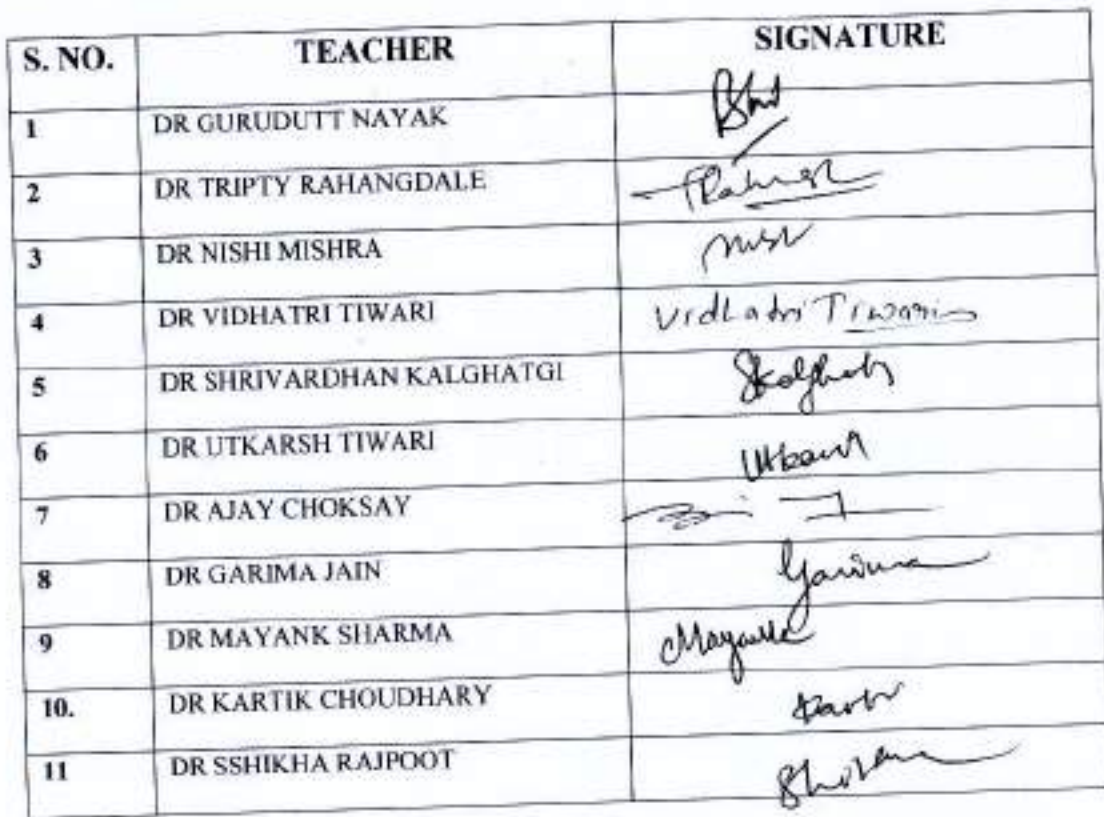 S. NO. TEACHER SIGNATURE
1 DR GURUDUTT NAYAK
2 DR TRIPTY RAHANGDALE
3 DR NISHI MISHRA
4 DR VIDHATRI TIWARI Vidhatri Tiwari
5 DR SHRIVARDHAN KALGHATGI
6 DR UTKARSH TIWARI
7 DR AJAY CHOKSAY
8 DR GARIMA JAIN Garima
9 DR MAYANK SHARMA Mayank
10. DR KARTIK CHOUDHARY
11 DR SSHIKHA RAJPOOT